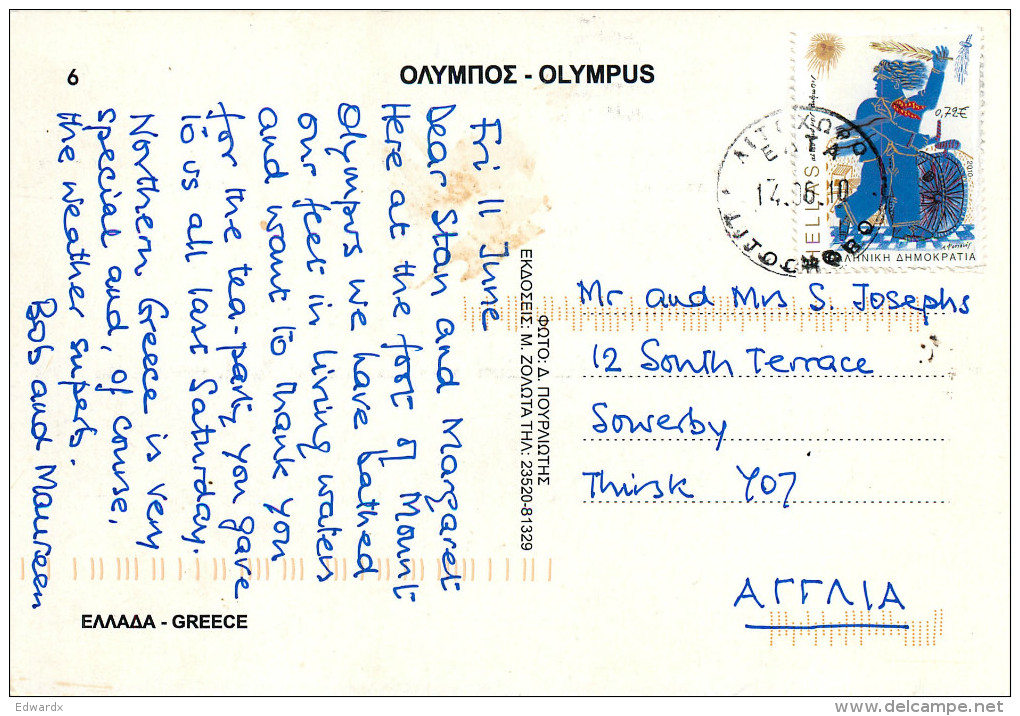 6
ΟΛΥΜΠΟΣ - OLYMPUS
Fri 11 June
Dear Stan and Margaret
Here at the foot of Mount
Olympus we have bathed
our feet in living waters
and want to thank you
for the tea-party you gave
to us all last Saturday.
Northern Greece is very
special and, of course,
the weather superb.
Bob and Maureen
ΕΛΛΑΔΑ - GREECE
ΦΩΤΟ: Δ. ΠΟΥΡΛΙΩΤΗΣ
ΕΚΔΟΣΕΙΣ: Μ. ΖΟΛΩΤΑ ΤΗΛ: 23520-81329
ΛΙΤΟΧΩΡΟ
14.06.10
HELLAS
0,72€
2010
ΕΛΛΗΝΙΚΗ ΔΗΜΟΚΡΑΤΙΑ
Mr and Mrs S. Josephs
12 South Terrace
Sowerby
Thirsk YO7
ΑΓΓΛΙΑ
Edwardx
delcampe.net